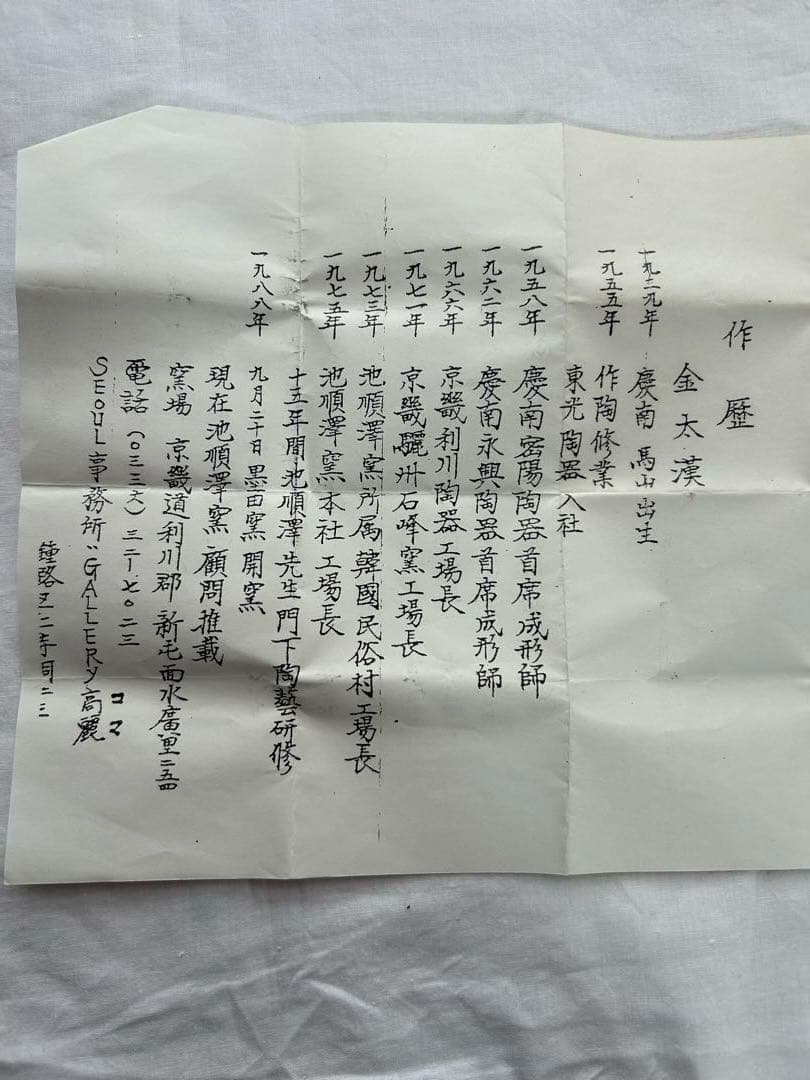 作歷
金太漢
一九二九年 慶南 馬山出生
一九五五年 作陶修業
東光陶器入社
一九五八年 慶南密陽陶器首席成形師
一九六二年 慶南永興陶器首席成形師
一九六六年 京畿利川陶器工場長
一九七一年 京畿驪州石峰窯工場長
一九七三年 池順澤窯所属韓國民俗村工場長
一九七五年 池順澤窯本社工場長
十五年間池順澤先生門下陶藝研修
一九八八年 九月二十日 黒田窯開窯
現在池順澤窯顧問推載
窯場 京畿道利川郡 新屯面水廣里二五四
電話 (〇三三六) 三二-七〇二三
SEOUL事務所 "GALLERY高麗 コマ
鍾路